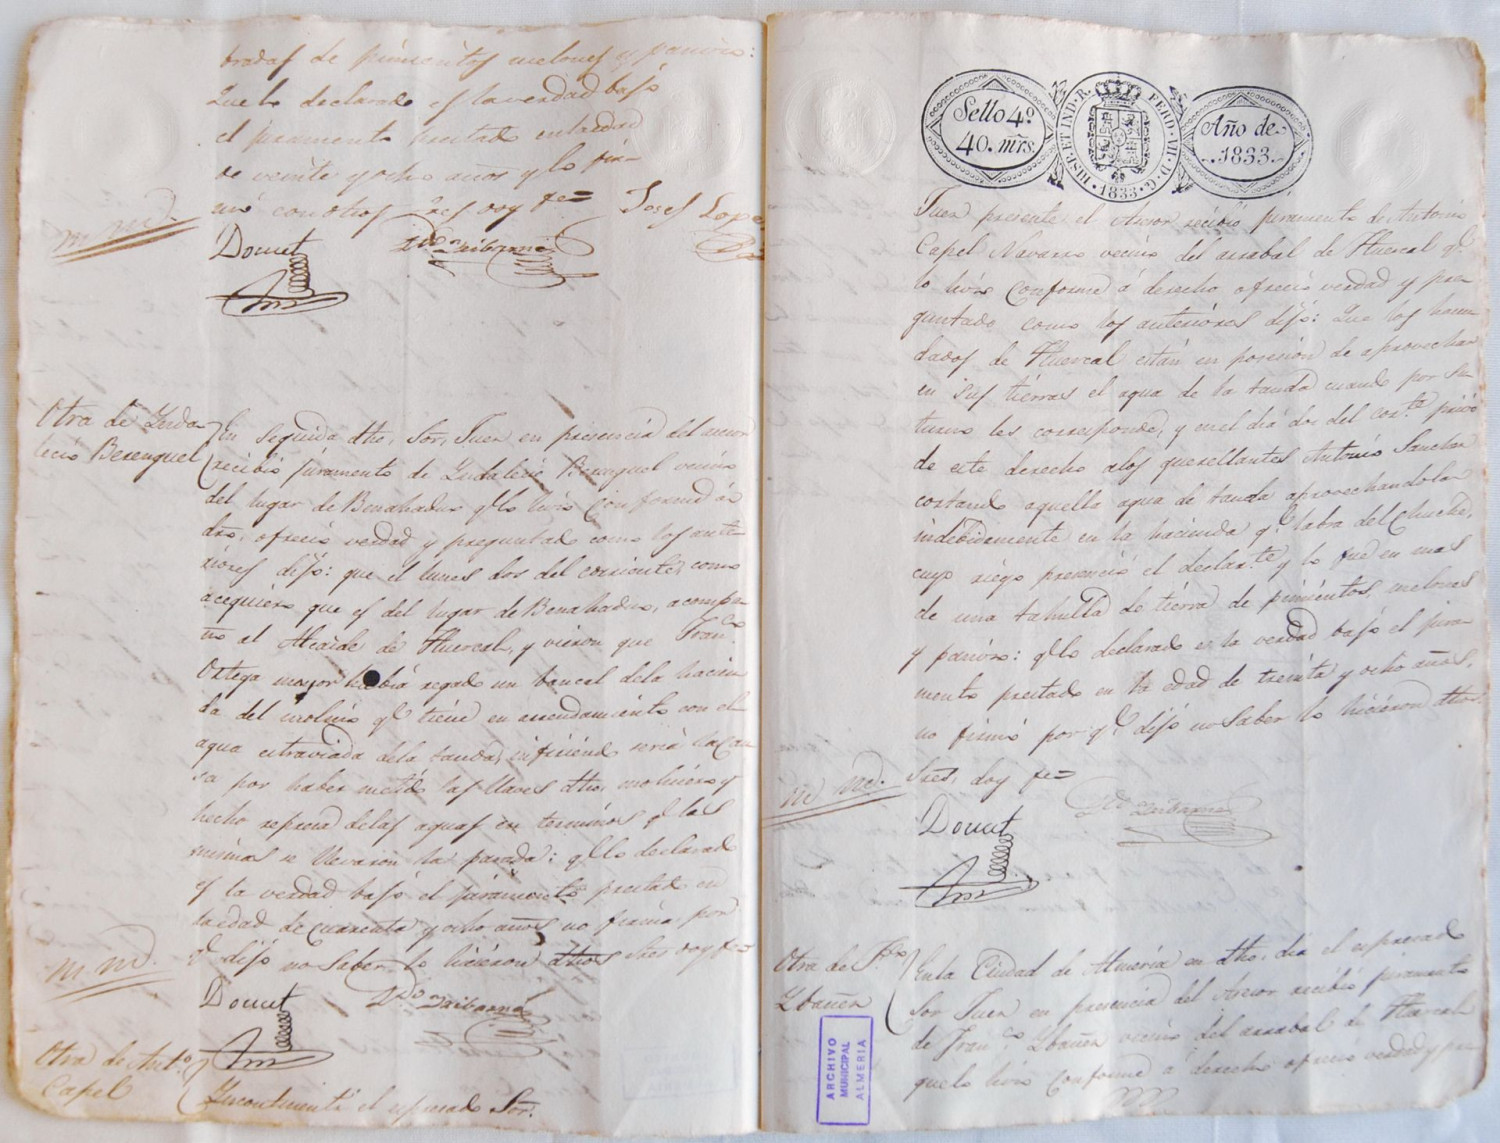 bradas de pimientos melones y panizo:
Que lo declarado es la verdad bajo
el juramento prestado en la edad
de veinte y ocho años y lo fir-
mó con otros Sres doy fe=
Josef Lopez
Doucet
Otra de Yndalecio Berenguel
En seguida dho, Sor, Juez en presencia del asesor
recibió juramento de Yndalecio Berenguel vecino
del lugar de Benahadux qe lo hizo conforme á
dro, ofreció verdad y preguntado como los ante-
riores dijo: que el lunes dos del corriente, como
acequiero que es del lugar de Benahadux, acompa-
ñó al Alcalde de Huercal, y vieron que Franco
Ortega mayor habia regado un bancal de la hacien-
da del molino qe tiene en arrendamiento con el
agua estraviada de la tanda, infiriendo seria la cau-
sa por haber metido las llaves dho, molinero y
hecho represa de las aguas en terminos qe las
mismas se llevaron la parada: qe lo declarado
es la verdad bajo el juramento prestado en
la edad de cuarenta y ocho años no firma por
qe dijo no saber lo hicieron dhos Sres doy fe=
Doucet
Otra de Anto
Capel
Yncontinenti el espresado Sor.
Sello 4º
40. mrs.
HISP. ET IND. R. FERD. VII. D. G.
·1833·
Año de
1833.
Juez presente el Asesor recibió juramento de Antonio
Capel Navarro vecino del arrabal de Huercal qe
lo hizo conforme á derecho ofreció verdad y pre-
guntado como los anteriores dijo: Que los hacen-
dados de Huercal están en posesion de aprovechar
en sus tierras el agua de la tanda cuando por su
turno les corresponde, y en el dia dos del corte privó
de este derecho a los querellantes Antonio Sanchez
cortando aquella agua de tanda aprovechandola
indebidamente en la hacienda qe labra del Chuche,
cuyo riego presenció el declarte y lo fue en mas
de una tahulla de tierra de pimientos, melones
y panizo: qe lo declarado es la verdad bajo el jura-
mento prestado en la edad de treinta y ocho años,
no firmó por qe dijo no saber lo hicieron dhos
Sres, doy fe=
Doucet
Otra de Fco
Ybañez
En la Ciudad de Almeria en dho, dia el espresado
Sor Juez en presencia del Asesor recibió juramento
de Franco Ybañez vecino del arrabal de Huercal
que lo hizo conforme á derecho ofreció verdad y pre
ARCHIVO
MUNICIPAL
ALMERIA